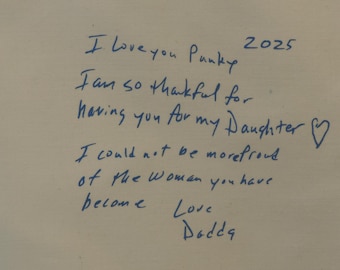 I Love you Punky 2025
I am so thankful for
having you for my Daughter ♡
I could not be more proud
of the Woman you have
become Love
Dadda